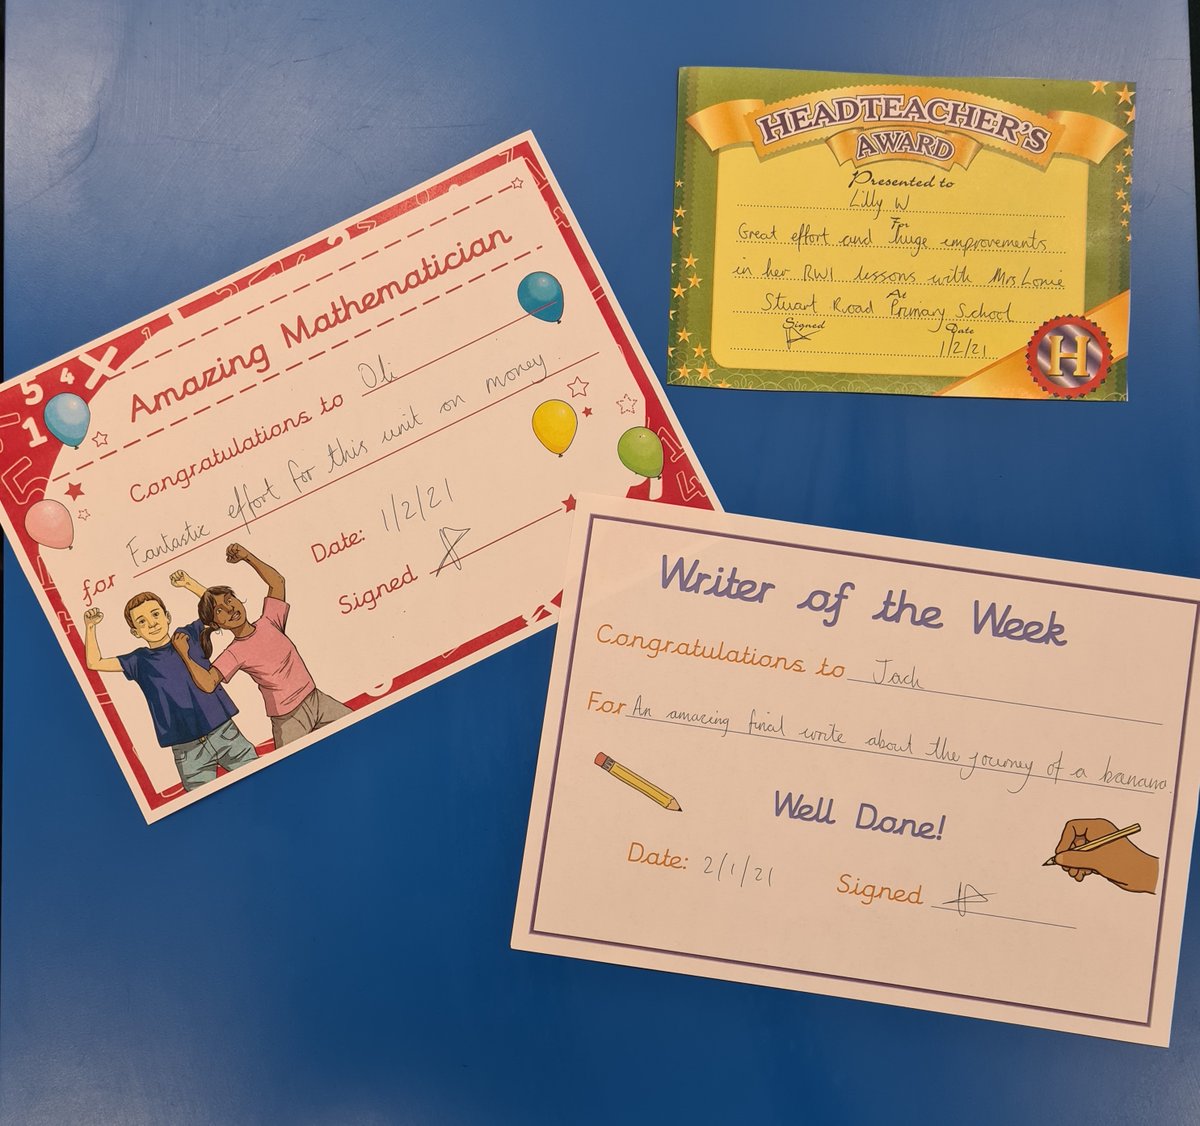 Amazing Mathematician
Congratulations to Oli
for Fantastic effort for this unit on money.
Date: 1/2/21
Signed
HEADTEACHER'S
AWARD
Presented to
Lilly W
For
Great effort and huge improvements
in her RWI lessons with Mrs Lonie
At
Stuart Road Primary School
Signed
Date
1/2/21
H
Writer of the Week
Congratulations to Jack
For An amazing final write about the journey of a banana.
Well Done!
Date: 2/1/21
Signed